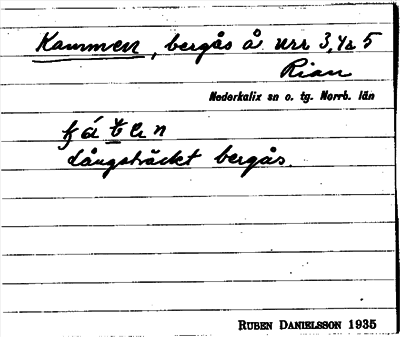 Kammen, bergås å urr 3, Ya 5
Rian
Nederkalix sn o. tg. Norrb. län
Långsträckt bergås.
RUBEN DANIELSSON 1935